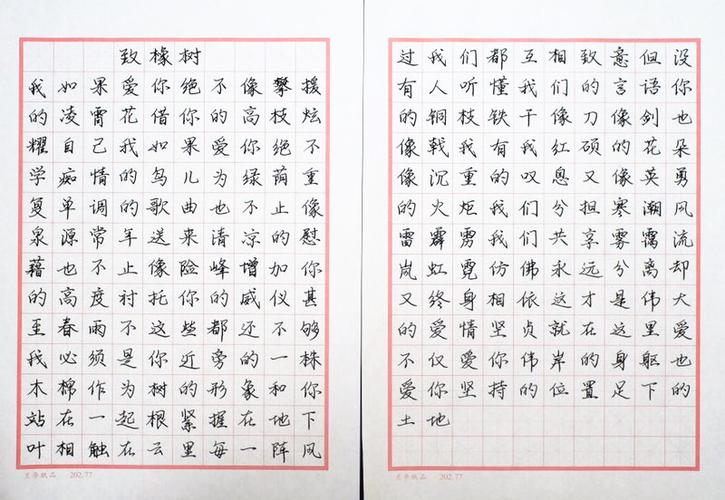 致橡树
我如果爱你绝不像攀援
的凌霄花借你的高枝炫
耀自己我如果爱你绝不
学痴情的鸟儿为绿荫重
复单调的歌曲也不止像
泉源常年送来清凉的慰
藉也不止像险峰增加你
的高度衬托你的威仪甚
至春雨不这些都还不够
我必须是你近旁的一株
木棉作为树的形象和你
站在一起根紧握在地下
叶相触在云里每一阵风
202.77
过我们都互相致意但没
有人听懂我们的言语你
的铜枝铁干像刀像剑也
像戟我有我红硕的花朵
像沉重的叹息又像英勇
的火炬我们分担寒潮风
雷霹雳我们共享雾霭流
岚虹霓仿佛永远分离却
又终身相依这才是伟大
的爱情坚贞就在这里爱
不仅爱你伟岸的身躯也
爱你坚持的位置足下的
土地
202.77